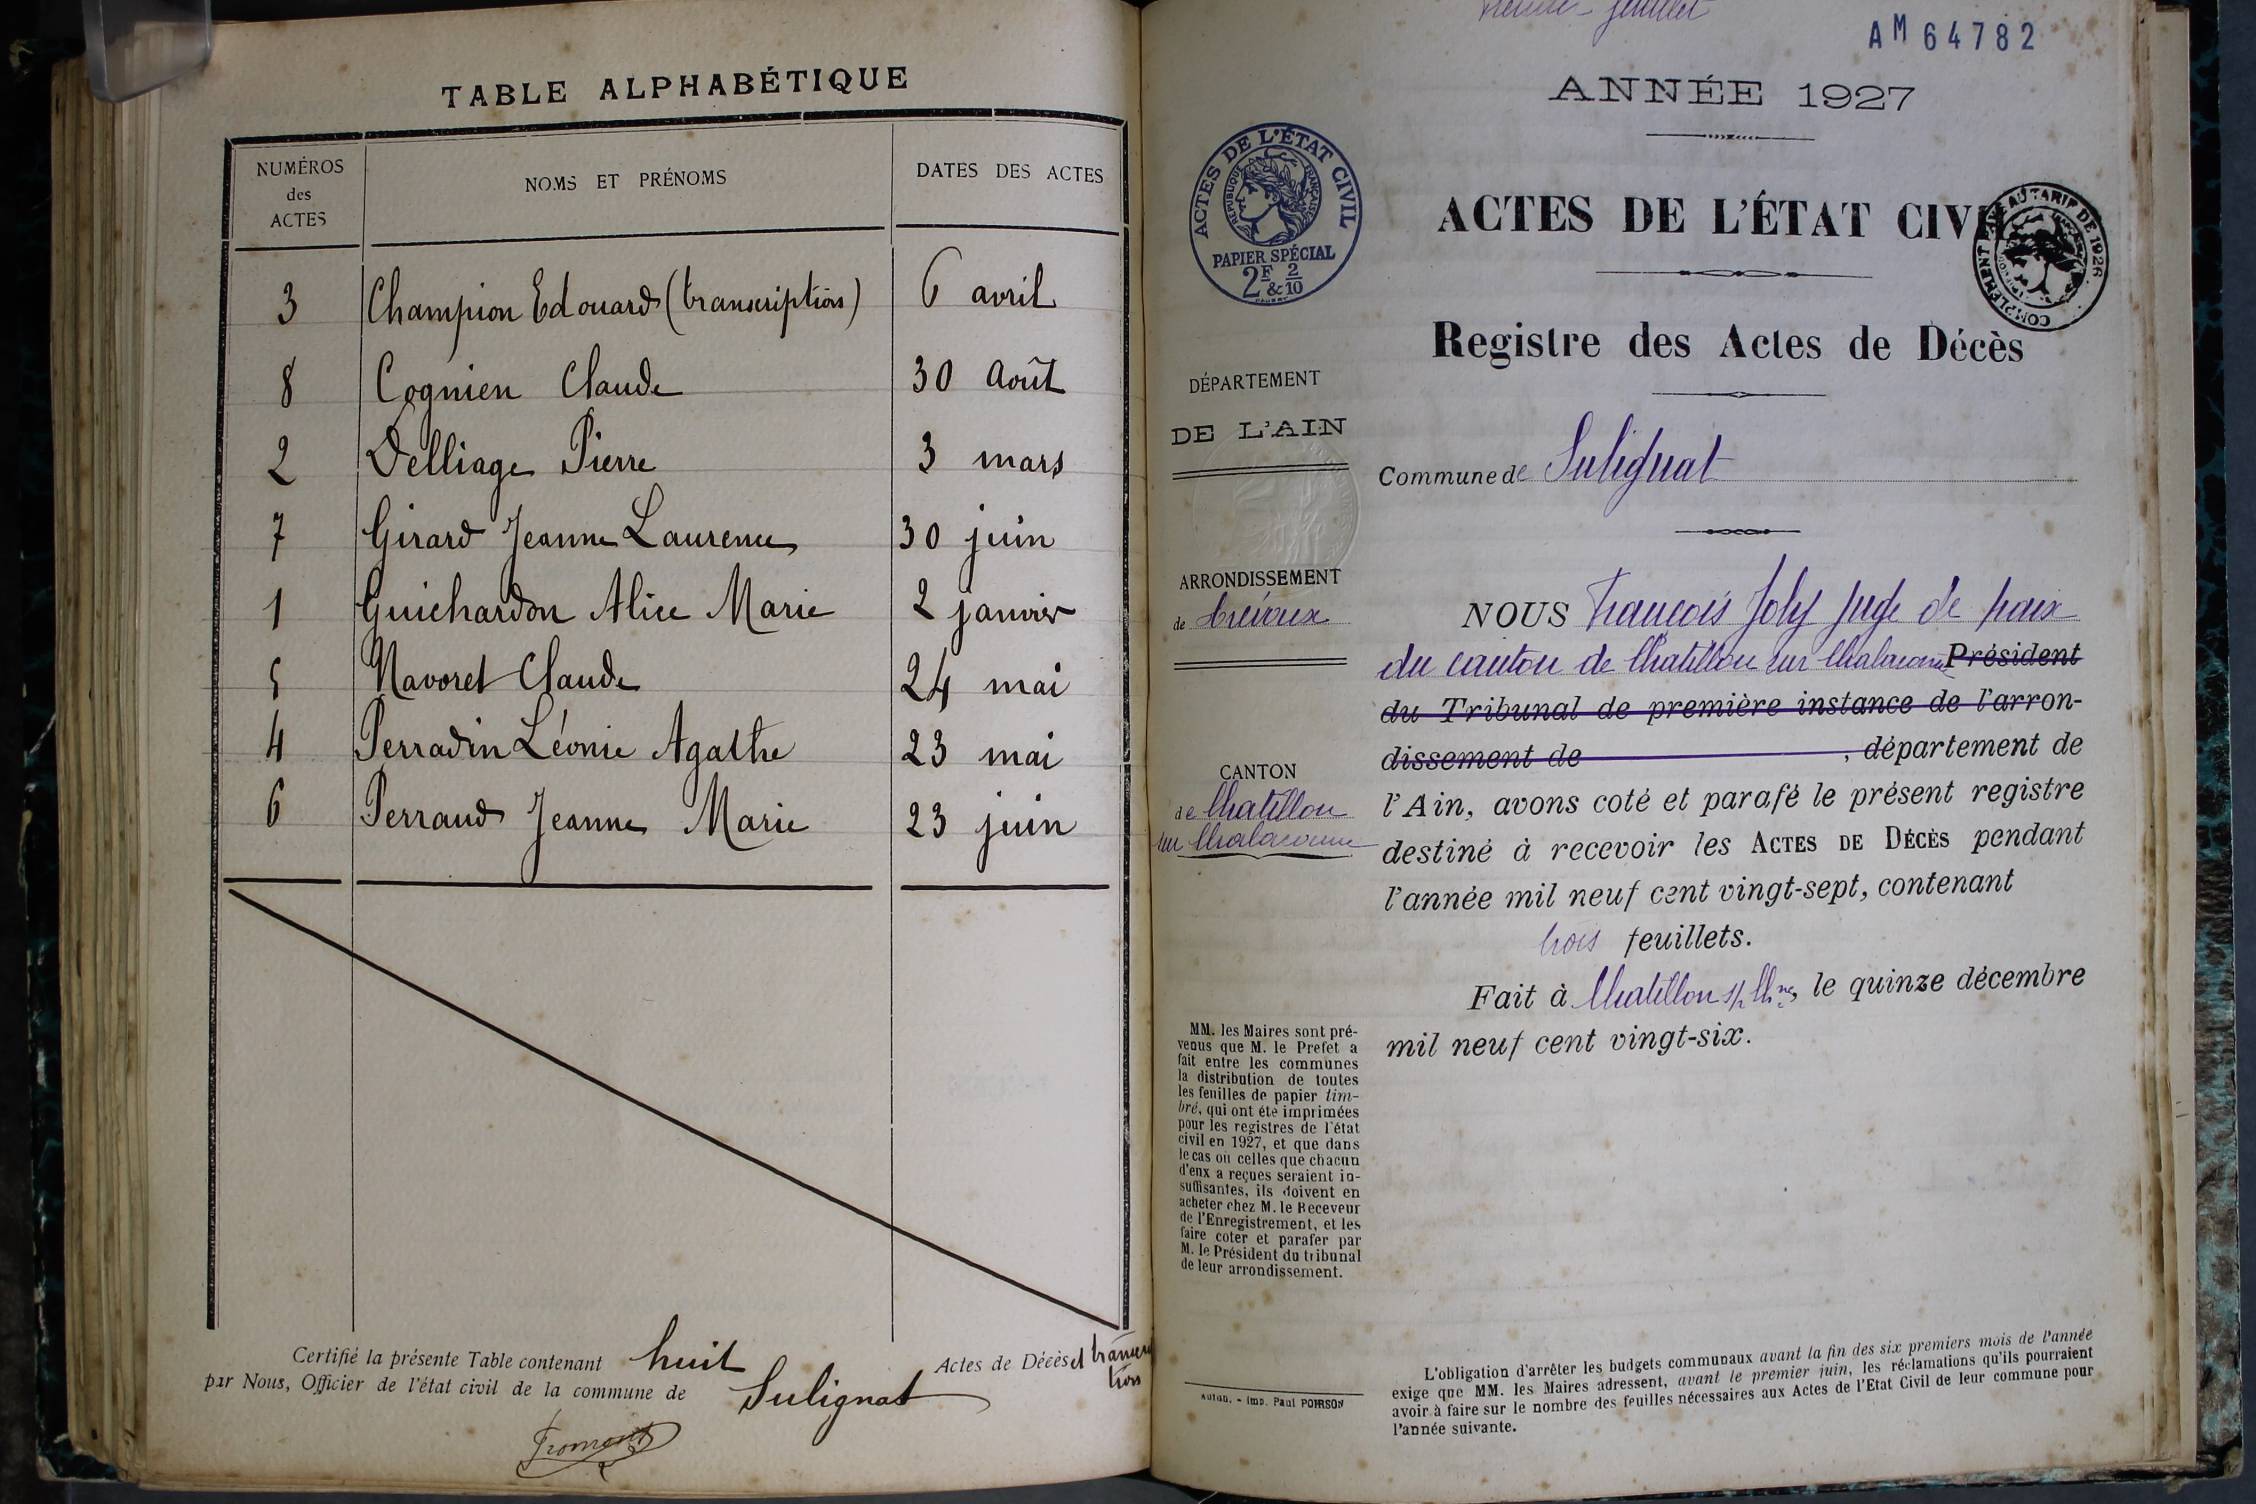 TABLE ALPHABÉTIQUE
NUMÉROS
des
ACTES
NOMS ET PRÉNOMS
DATES DES ACTES
3 Champion Edouard (transcription) 6 avril
8 Cognien Claude 30 Août
2 Delliage Pierre 3 mars
7 Girard Jeanne Laurence 30 juin
1 Guichardon Alice Marie 2 janvier
5 Navoret Claude 24 mai
4 Perradin Léonie Agathe 23 mai
6 Perraud Jeanne Marie 23 juin
Certifié la présente Table contenant huit Actes de Décès et
par Nous, Officier de l'état civil de la commune de Sulignat
Fromont
juillet
AM 64782
ANNÉE 1927
ACTES DE L'ÉTAT CIVIL
RÉPUBLIQUE FRANÇAISE
PAPIER SPÉCIAL
2F & 2/10
ACTES DE L'ÉTAT CIVIL
COMPLÉMENT AU TARIF DE 1926
Registre des Actes de Décès
DÉPARTEMENT
DE L'AIN
Commune de Sulignat
ARRONDISSEMENT
de Trévoux
CANTON
de Chatillon
sur Chalaronne
NOUS François Joly Juge de paix
du canton de Chatillon sur Chalaronne Président
du Tribunal de première instance de l'arron-
dissement de , département de
l'Ain, avons coté et parafé le présent registre
destiné à recevoir les ACTES DE DÉCÈS pendant
l'année mil neuf cent vingt-sept, contenant
trois feuillets.
Fait à Chatillon s/ Chne, le quinze décembre
mil neuf cent vingt-six.
MM. les Maires sont pré-
venus que M. le Prefet a
fait entre les communes
la distribution de toutes
les feuilles de papier tim-
bré, qui ont été imprimées
pour les registres de l'état
civil en 1927, et que dans
le cas où celles que chacun
d'eux a reçues seraient in-
suffisantes, ils doivent en
acheter chez M. le Receveur
de l'Enregistrement, et les
faire coter et parafer par
M. le Président du tribunal
de leur arrondissement.
Autun. - Imp. Paul POIRSON
L'obligation d'arrêter les budgets communaux avant la fin des six premiers mois de l'année
exige que MM. les Maires adressent, avant le premier juin, les réclamations qu'ils pourraient
avoir à faire sur le nombre des feuilles nécessaires aux Actes de l'Etat Civil de leur commune pour
l'année suivante.